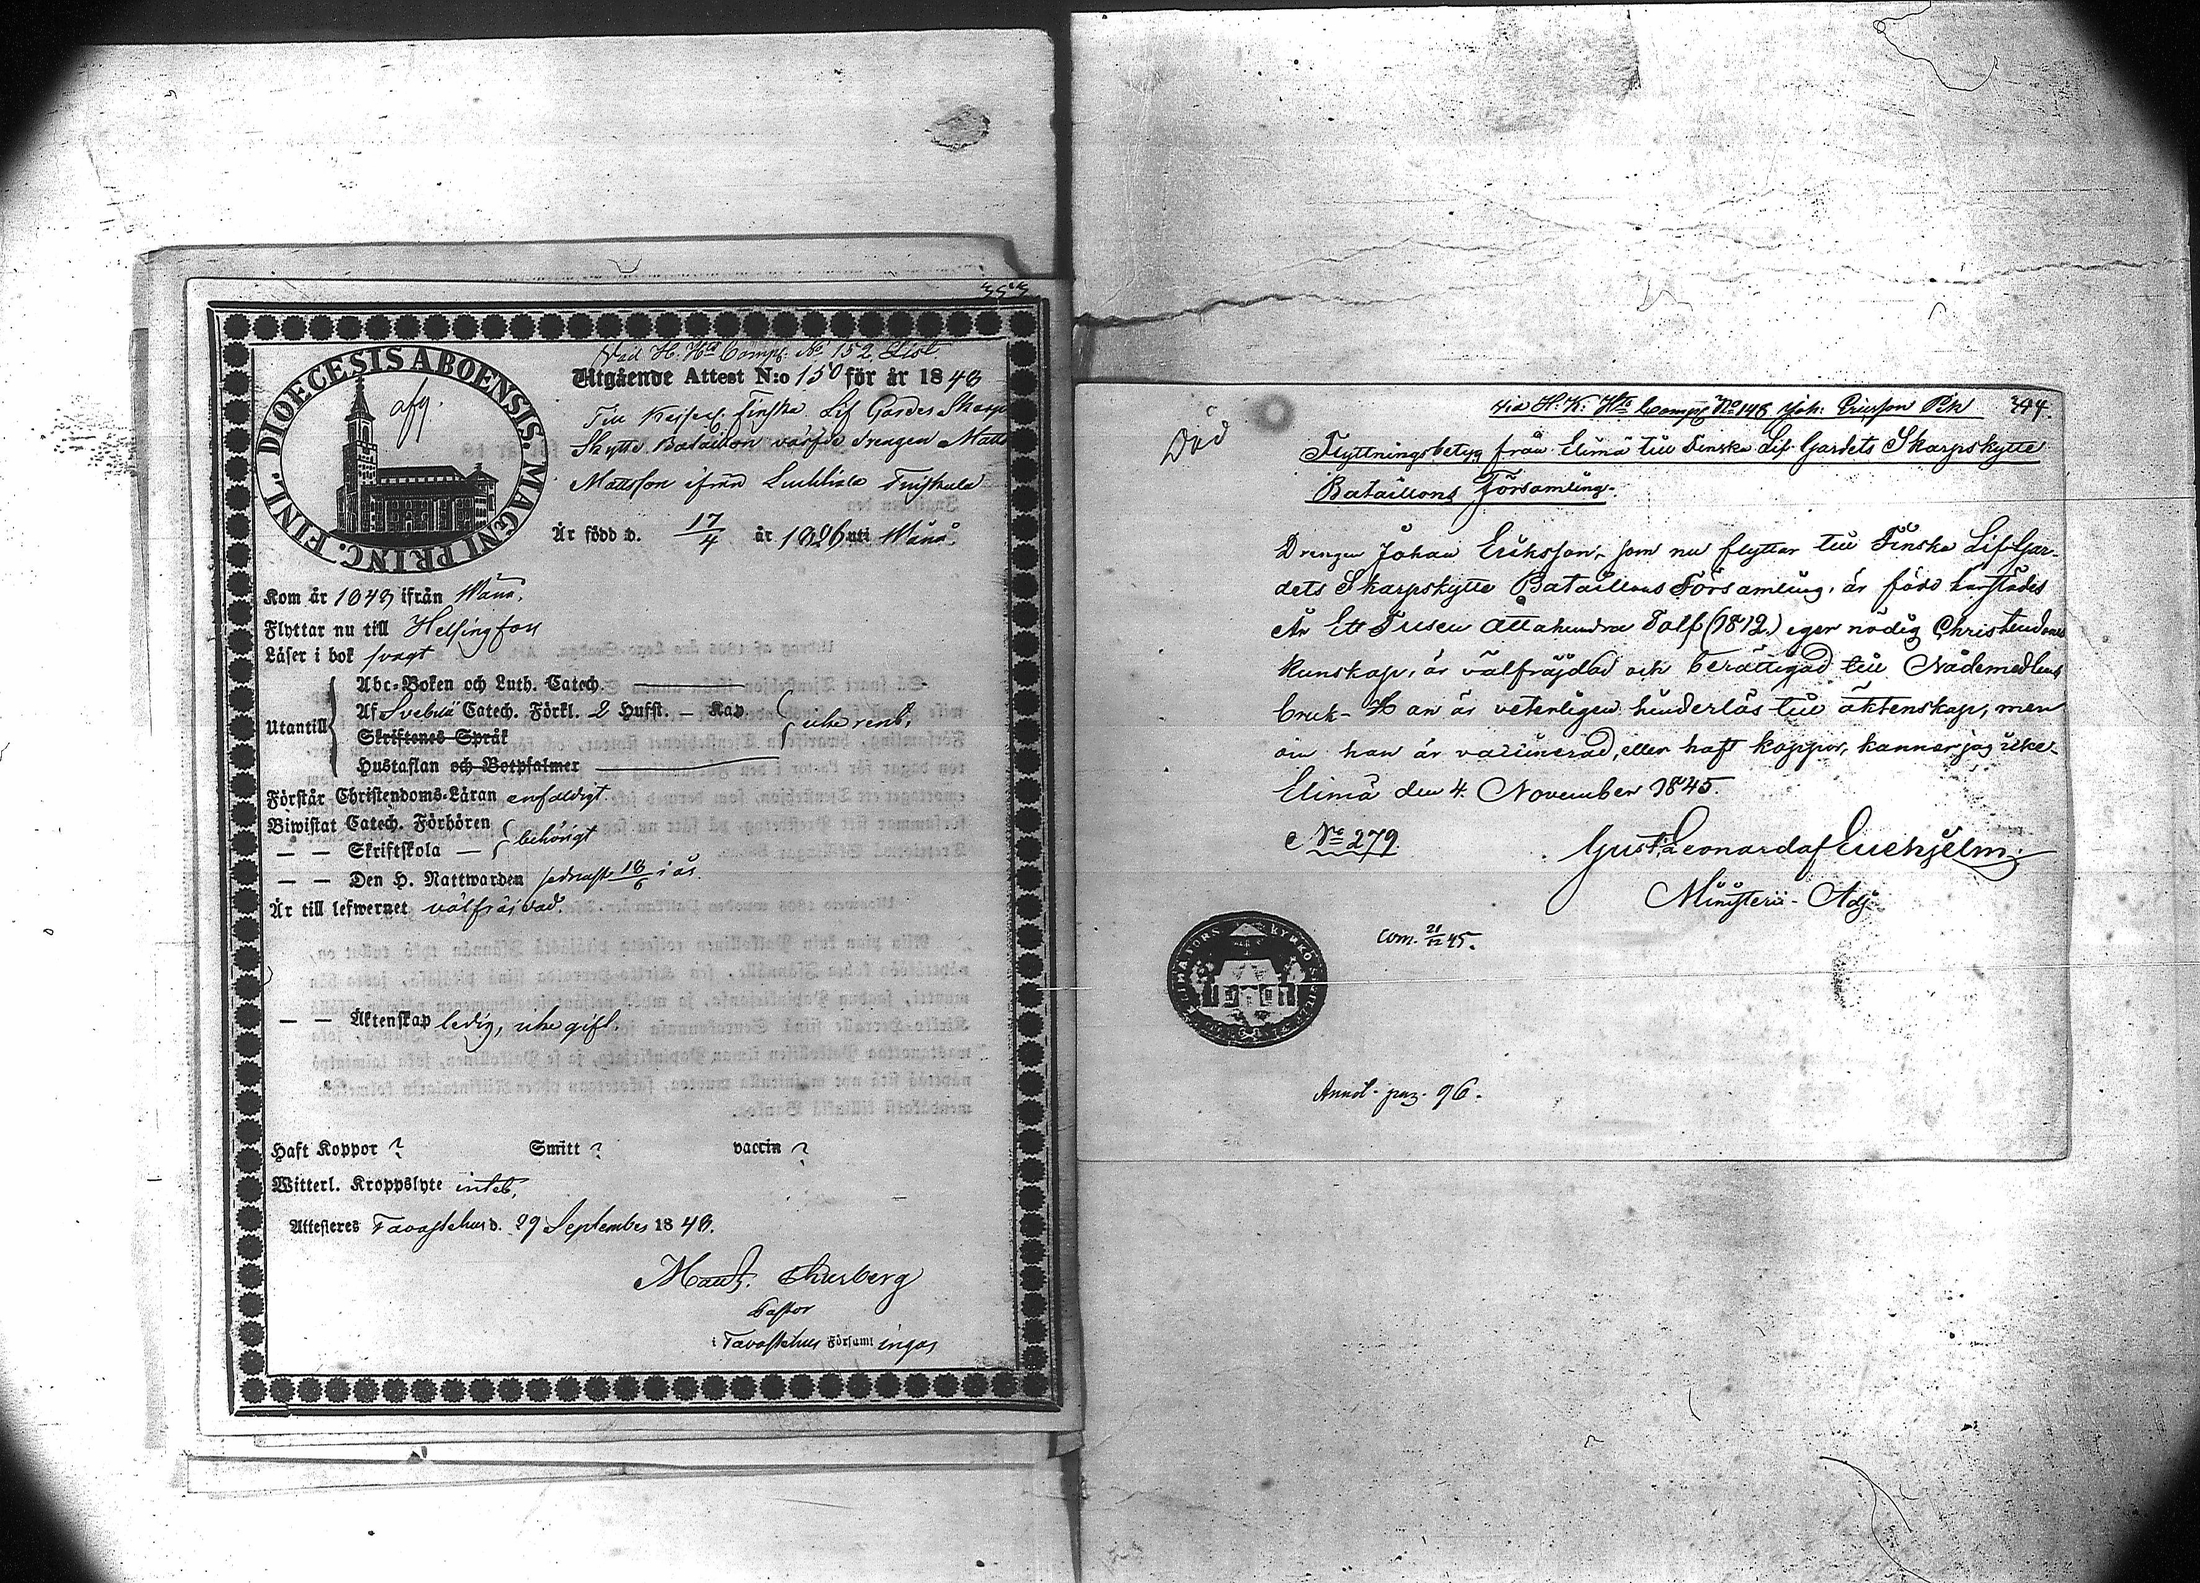 343
DIOECESIS ABOENSIS. MAGNI PRINC. FINL.
afg.
Vid H. Hds Comp: No 152 List
Utgående Attest N:o 150 för år 1843
Till Kejserl. Finska Lif Gardes Skarp
Skytte Bataillon värfde drengen Matts
Mattsson ifrån Luhtiala
Är född d. 17/4 år 1826 uti Wånå
Kom år 1843 ifrån Wånå.
Flyttar nu till Helsingfors
Läser i bok svagt
Utantill
Abc-Boken och Luth. Catech.
Af Svebelii Catech. Förkl. 2 Hufst. — Kap
Skriftenes Språk
Hustaflan och Botpsalmer
icke rent.
Förstår Christendoms-Läran enfaldigt.
Biwistat Catech. Förhören
— — Skriftskola —
behörigt
— — Den H. Nattwarden sednast 18/6 i år.
Är till lefwernet välfräjdad.
— — Äktenskap ledig, icke gift.
Haft Koppor ? Smitt ? vaccin ?
Witterl. Kroppslyte intet,
Attesteras Tavastehus d. 29 September 1843.
Maur. Thurberg
Pastor
i Tavastehus Församlingar
Vid H. K: Hds Comp: No 148 Joh: Ericsson Bk 344.
Död
Flyttningsbetyg från Elimä till Finska Lif Gardets Skarpskytte
Bataillons Församling.
Drengen Johan Eriksson, som nu flyttar till Finska Lif-Gar-
dets Skarpskytte Bataillons Församling, är född härstädes
År Ett Tusen Åttahundra Tolf (1812.) eger nödig Christendoms
kunskap, är välfräjdad och berättigad till Nådemedlens
bruk- Han är veterligen hinderlös till äktenskap, men
om han är vaccinerad, eller haft koppor, känner jag icke-
Elimä den 4. November 1845.
No 279.
Gust. Leonard af Enehjelm.
Ministerii- Adj.
com. 21/12 45.
ELIMÄ KYRKO SIGILL
Annot. pag. 96.